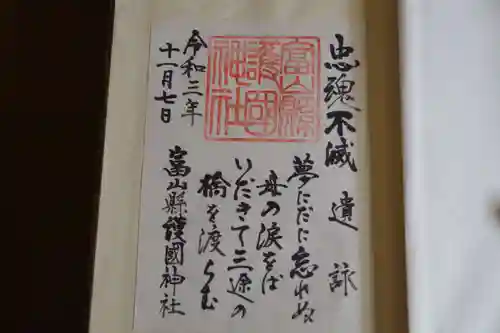 忠魂不滅 遺詠
夢にだに忘れぬ
母の涙をば
いだきて三途の
橋を渡らむ
富山縣護國神社
令和三年
十一月七日
富山縣
護國
神社